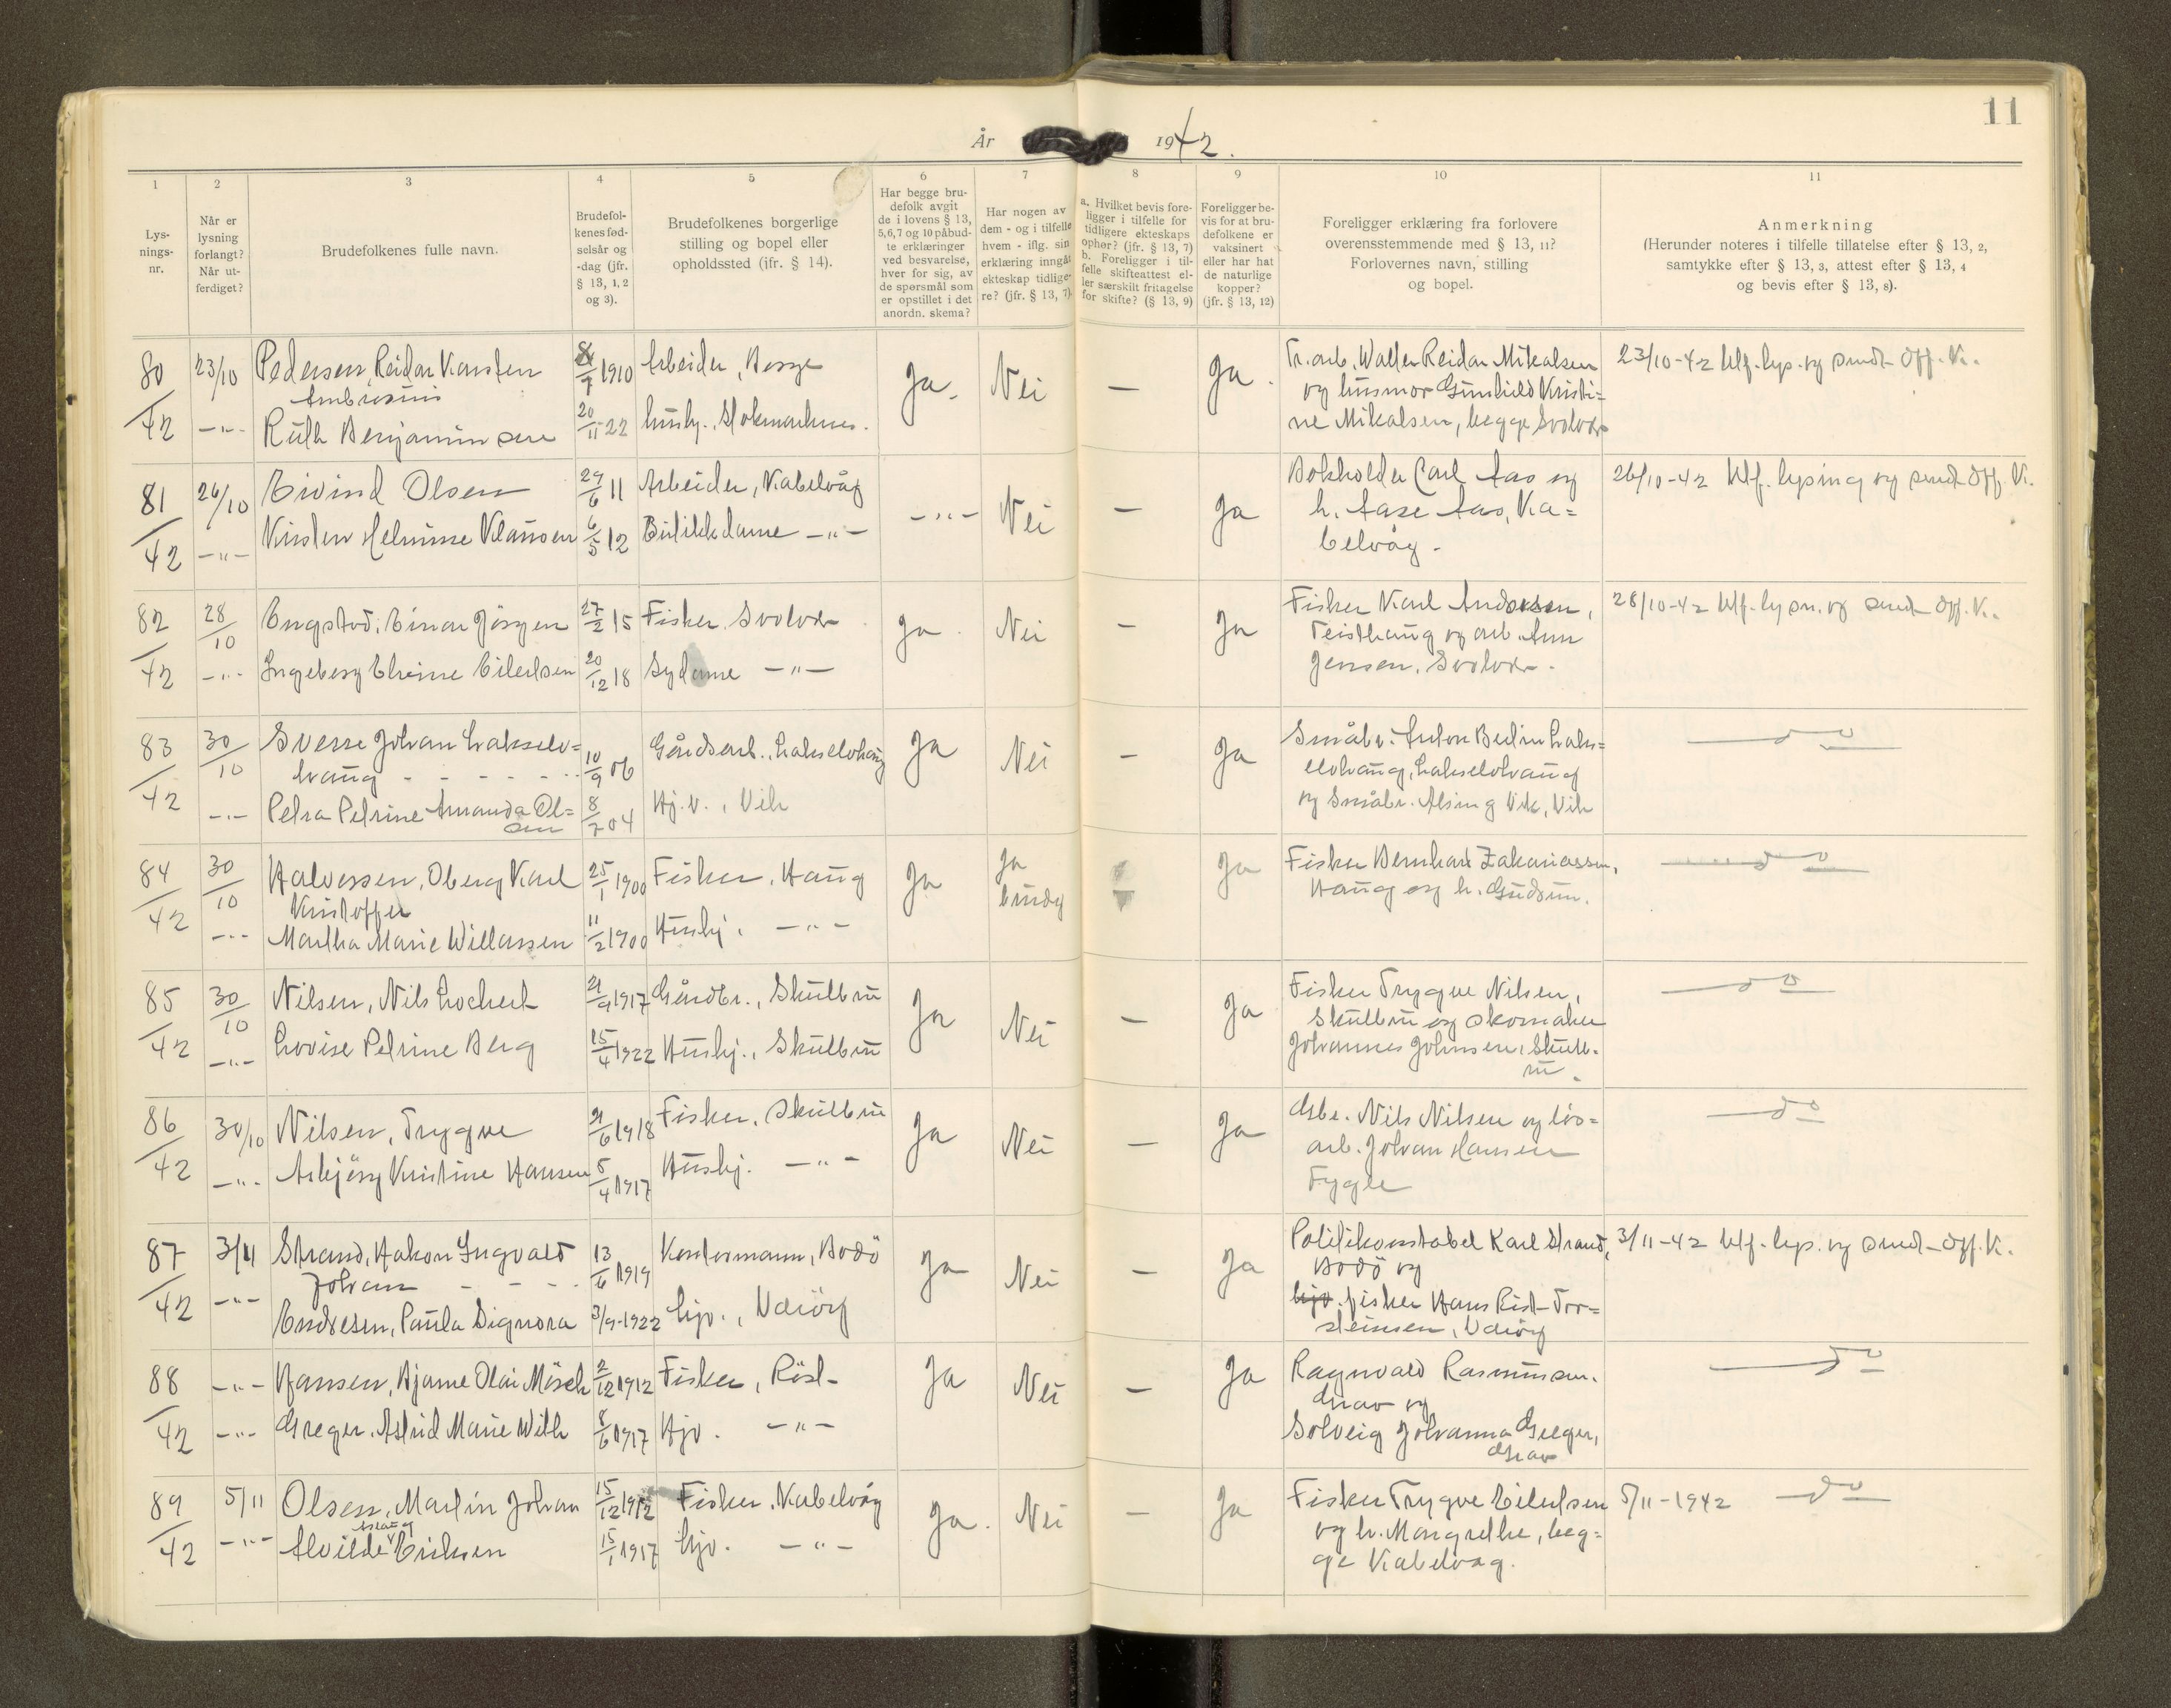 11
År 1942.
1
2
3
4
5
6
7
8
9
10
11
Lys-
nings-
nr.
Når er
lysning
forlangt?
Når ut-
ferdiget?
Brudefolkenes fulle navn.
Brudefol-
kenes fød-
selsår og
-dag (jfr.
§ 13, 1, 2
og 3).
Brudefolkenes borgerlige
stilling og bopel eller
opholdssted (jfr. § 14).
Har begge bru-
defolk avgit
de i lovens § 13,
5, 6, 7 og 10 påbud-
te erklæringer
ved besvarelse,
hver for sig, av
de spørsmål som
er opstillet i det
anordn. skema?
Har nogen av
dem - og i tilfelle
hvem - iflg. sin
erklæring inngåt
ekteskap tidlige-
re? (jfr. § 13, 7)
a. Hvilket bevis fore-
ligger i tilfelle for
tidligere ekteskaps
ophør? (jfr. § 13, 7)
b. Foreligger i til-
felle skifteattest el-
ler særskilt fritagelse
for skifte? (§ 13, 9)
Foreligger be-
vis for at bru-
defolkene er
vaksinert
eller har hat
de naturlige
kopper?
(jfr. § 13, 12)
Foreligger erklæring fra forlovere
overensstemmende med § 13, 11?
Forlovernes navn, stilling
og bopel.
Anmerkning
(Herunder noteres i tilfelle tillatelse efter § 13, 2,
samtykke efter § 13, 3, attest efter § 13, 4
og bevis efter § 13, 8).
80/42 23/10 Pedersen, Reidar Karsten 1910 Arbeider, Borge Ja. Nei — Ja.
Ambrosius
-"- Ruth Benjaminsen 20/11-22 hushj., Stokmarknes.
Tr.arb. Walter Reidar Mikalsen
og husmor Gunhild Kristi=
ne Mikalsen, begge Svolvær
23/10-42 Utf. lys. og sendt Off. K.
81/42 26/10 Eivind Olsen 29/6 11 Arbeider, Kabelvåg -"- Nei — Ja
-"- Kirsten Helmine Klausen 6/5 12 Butikkdame -"-
Bokholder Carl Aas og
h. Aase Aas, Ka=
belvåg.
26/10-42 Utf. lysing og sendt Off. K.
82/42 28/10 Engstad, Einar Jørgen 27/2 15 Fisker, Svolvær Ja. Nei — Ja
-"- Ingeborg Elveine Eilertsen 20/12 18 Sydame -"-
Fisker Karl Andersen,
Teisthaug og arb. Arn
Jensen, Svolvær.
28/10-42 Utf. lysn. og sendt Off. K.
83/42 30/10 Sverre Johan Lakselv=
haug - - - - - 10/9 06 Gårdsarb., Lakselvhaug Ja Nei — Ja
-"- Petra Petrine Amanda Ol=
sen 8/7 04 Hj.v., Vik
Småbr. Anton Berlin Laks=
elvhaug, Lakselvhaug
og Småbr. Alsing Vik, Vik
— do —
84/42 30/10 Halvorsen, Oberg Karl 25/1 1900 Fisker, Haug Ja Ja Ja
Kristoffer
-"- Martha Marie Willassen 11/2 1900 Hushj. -"-
Fisker Bernhard Zakariassen,
Haug og h. Gudrun.
— do —
85/42 30/10 Nilsen, Nils Lockert 1917 Gårdbr., Skullbru Ja Nei — Ja
-"- Lovise Petrine Berg 15/4 1922 Hushj., Skullbru
Fisker Trygve Nilsen,
Skullbru og skomaker
Johannes Johnsen, Skullb-
ru.
— do —
86/42 30/10 Nilsen, Trygve 1918 Fisker, Skullbru Ja Nei — Ja
-"- Asbjörg Kristine Hansen 5/4 1917 Hushj. -"-
Gbr. Nils Nilsen og løs=
arb. Johan Hansen
Fygle
— do —
87/42 3/11 Strand, Hakon Ingvald 13/6 1919 Kontormann, Bodö Ja Nei — Ja
Johan - - -
-"- Endresen, Paula Signora 3/9-1922 hjv., Værøy
Politikonstabel Karl Strand,
Bodö og
hjv. fisker Hans Rist Tor=
steinsen, Værøy
3/11-42 Utf. lys. og sendt Off. K.
88/42 -"- Hansen, Hjarne Olai Mörch 2/12 1912 Fisker, Röst Ja Nei — Ja
-"- Greger, Astrid Marie With 8/6 1917 Hjv. -"-
Ragnvald Rasmussen,
Grav og
Solveig Johanna Greger,
Grav
— do —
89/42 5/11 Olsen, Martin Johan 15/12 1912 Fisker, Kabelvåg Ja. Nei — Ja
Aslaug
-"- Alvilde Eriksen 15/1 1917 hjv. -"-
Fisker Trygve Eilertsen
og h. Mangrethe, beg=
ge Kabelvåg.
5/11-1942 — do —